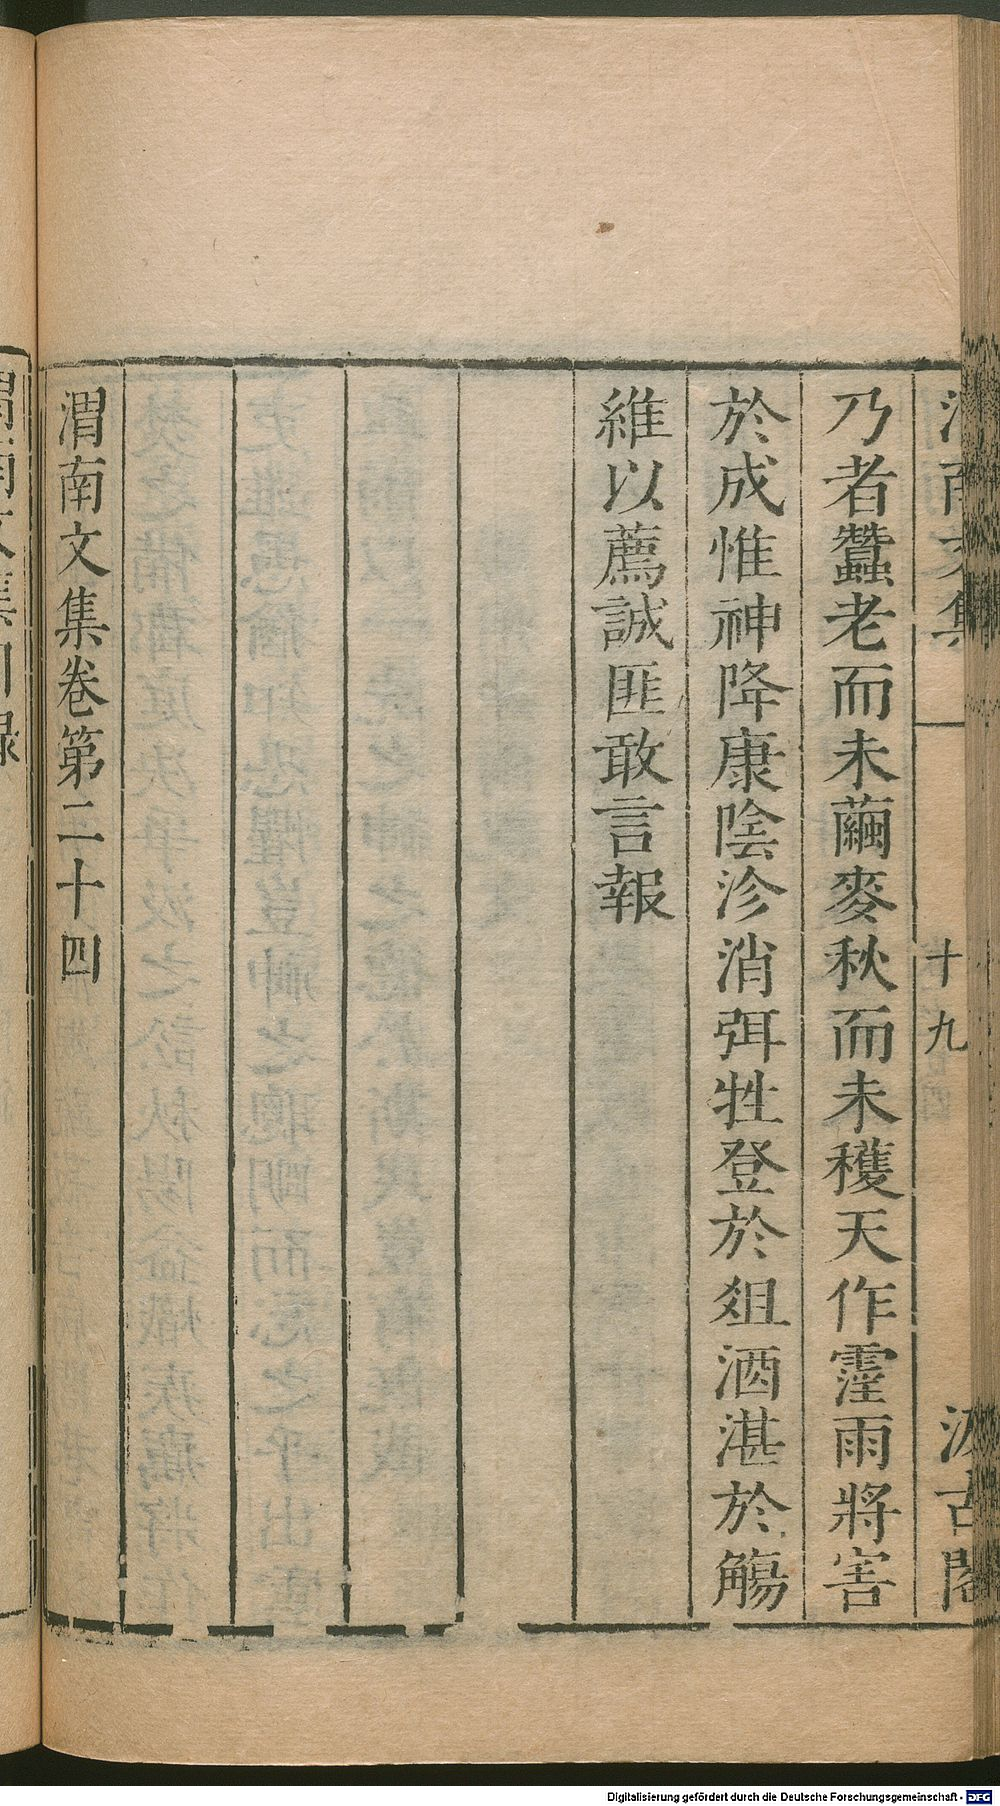 渭南文集
十九
汲古閣
乃者蠶老而未繭麥秋而未穫天作霪雨將害
於成惟神降康陰沴消弭牲登於俎酒湛於觴
維以薦誠匪敢言報
渭南文集卷第二十四
Digitalisierung gefördert durch die Deutsche Forschungsgemeinschaft - DFG